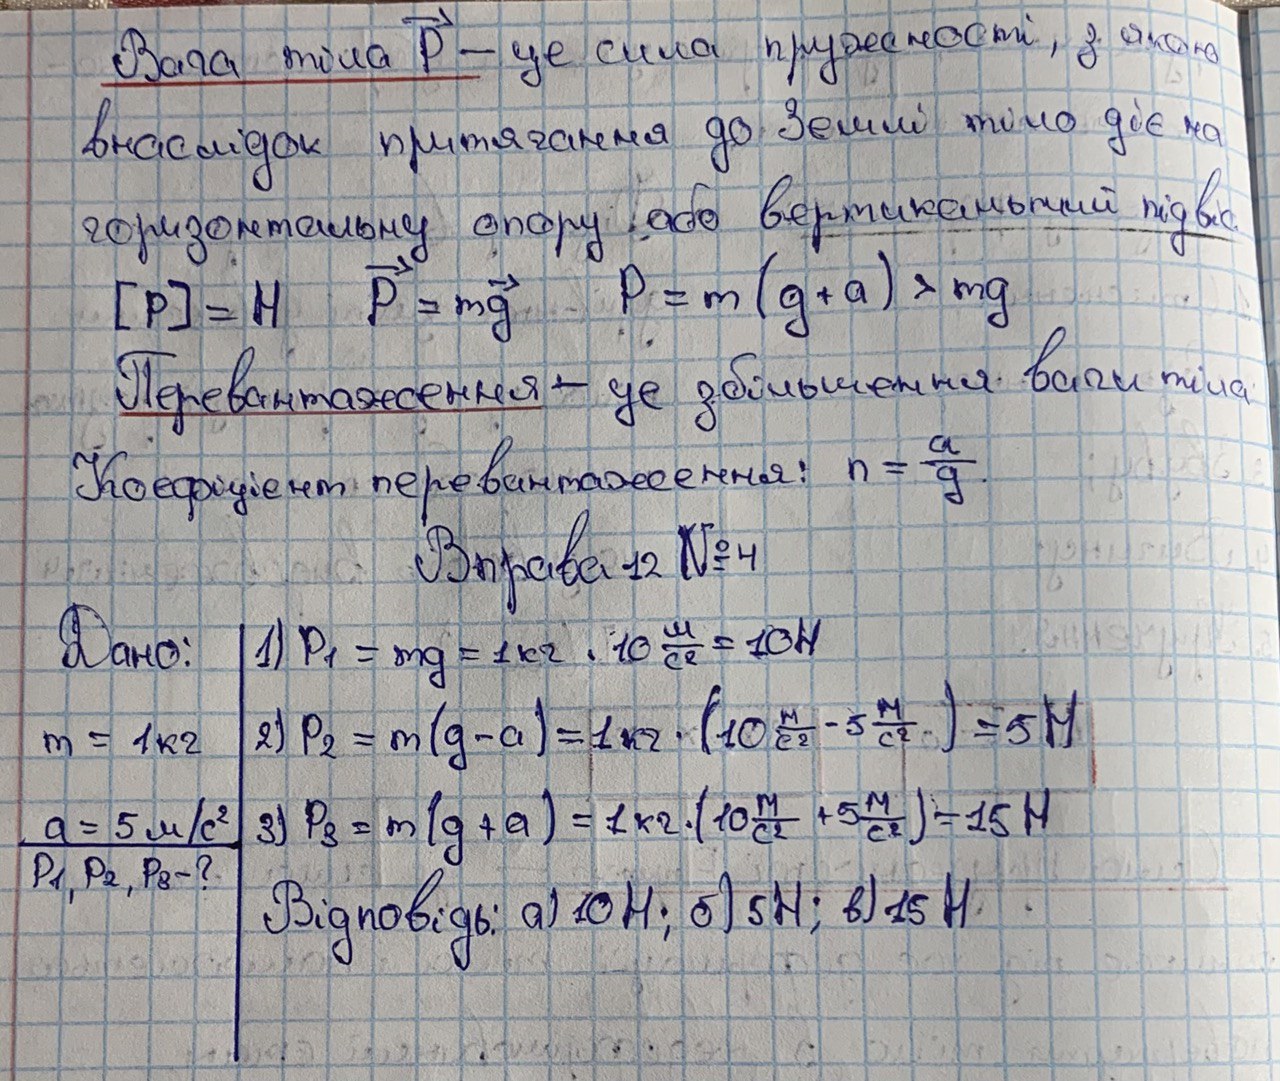 Вага тіла P⃗ – це сила пружності, з якою
внаслідок притягання до Землі тіло діє на
горизонтальну опору або вертикальний підвіс
[P] = Н P⃗ = mg⃗ P = m(g + a) > mg
Перевантаження – це збільшення ваги тіла
Коефіцієнт перевантаження: n = a/g
Вправа 12 №4
Дано:
m = 1 кг
a = 5 м/с²
P₁, P₂, P₃ – ?
1) P₁ = mg = 1 кг · 10 м/с² = 10 Н
2) P₂ = m(g – a) = 1 кг · (10 м/с² – 5 м/с²) = 5 Н
3) P₃ = m(g + a) = 1 кг · (10 м/с² + 5 м/с²) = 15 Н
Відповідь: а) 10 Н; б) 5 Н; в) 15 Н.